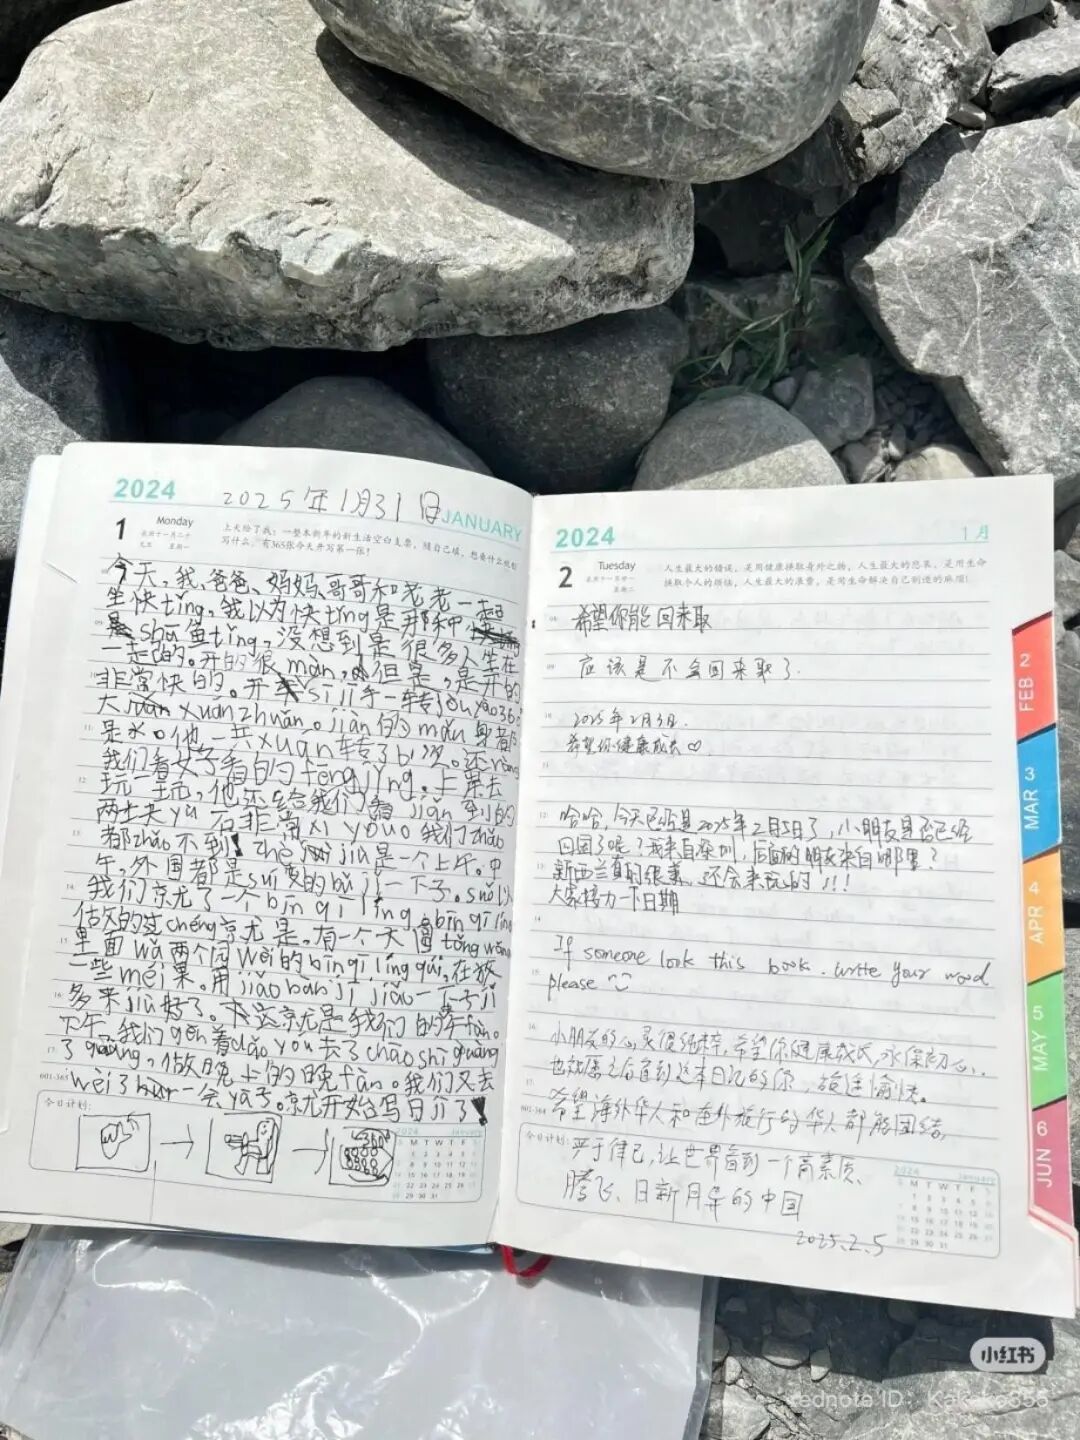 2024
2025年1月31日
JANUARY
1
Monday
上天给了我：一整本新年的新生活空白支票，随自己填，想要什么就
写什么，有365张今天开写第一张！
今天，我、爸爸、妈妈、哥哥和老老一起
坐快tǐng，我以为快tǐng是那种
shā鱼tǐng，没想到是很多人坐在
一起的。开的很màn，但是，是开的
非常快的。开 sī jī手一转jòu yào360
大 xuán zhuǎn。jiàn的mǎn身都
是水。他一共xuán转了6次。还
我们看女子看的fēng jǐng。上果去
玩一玩，他还给我们 jiàn到的
两土夫yú 石非常xī yǒu我们zhǎo
都zhǎo不到！zhè jiù是一个上午。中
午，外国都是suí便的bǔ jǐ一下子。suǒ以
我们京尤了一个bīng qí líng，bīng qí líng
估攵的过chéng京尤是。有一个大圆tǒng
里面wā两个园 的bīng qí líng qiú，在放
一些méi果。用jiǎo bàn jī jiǎo一下子jǐ
多来jiù好了。这京尤是我们的午fàn。
下午，我们gēn着dǎo yóu去了chāo shì guàng
了guàng，做晚上的晚fàn。我们又去
wèi了 一会yā子。京尤开始写日jì了
今日计划：
2024 January
2024
1月
2
Tuesday
人生最大的错误，是用健康换取身外之物，人生最大的悲哀，是用生命
换取个人的烦恼，人生最大的浪费，是用生命解决自己制造的麻烦！
希望你能回来取
应该是不会回来取了.
2025年2月3日.
希望你健康成长♡
哈哈，今天已经是2025年2月5日了，小朋友是否已经
回国了呢？我来自深圳，后面的朋友来自哪里？
新西兰真的很美，还会来玩的！！！
大家接力一下日期
If someone look this book. write your word
please
小朋友的心灵很纯粹，希望你健康成长，永保初心，
也祝愿之后看到这本日记的你，旅途愉快。
希望海外华人和在外旅行的华人都能团结，
今日计划：
严于律己，让世界看到一个高素质、
腾飞、日新月异的中国
2025.2.5
2024 January
2 FEB
3 MAR
4 APR
5 MAY
6 JUN
小红书
rednote ID：